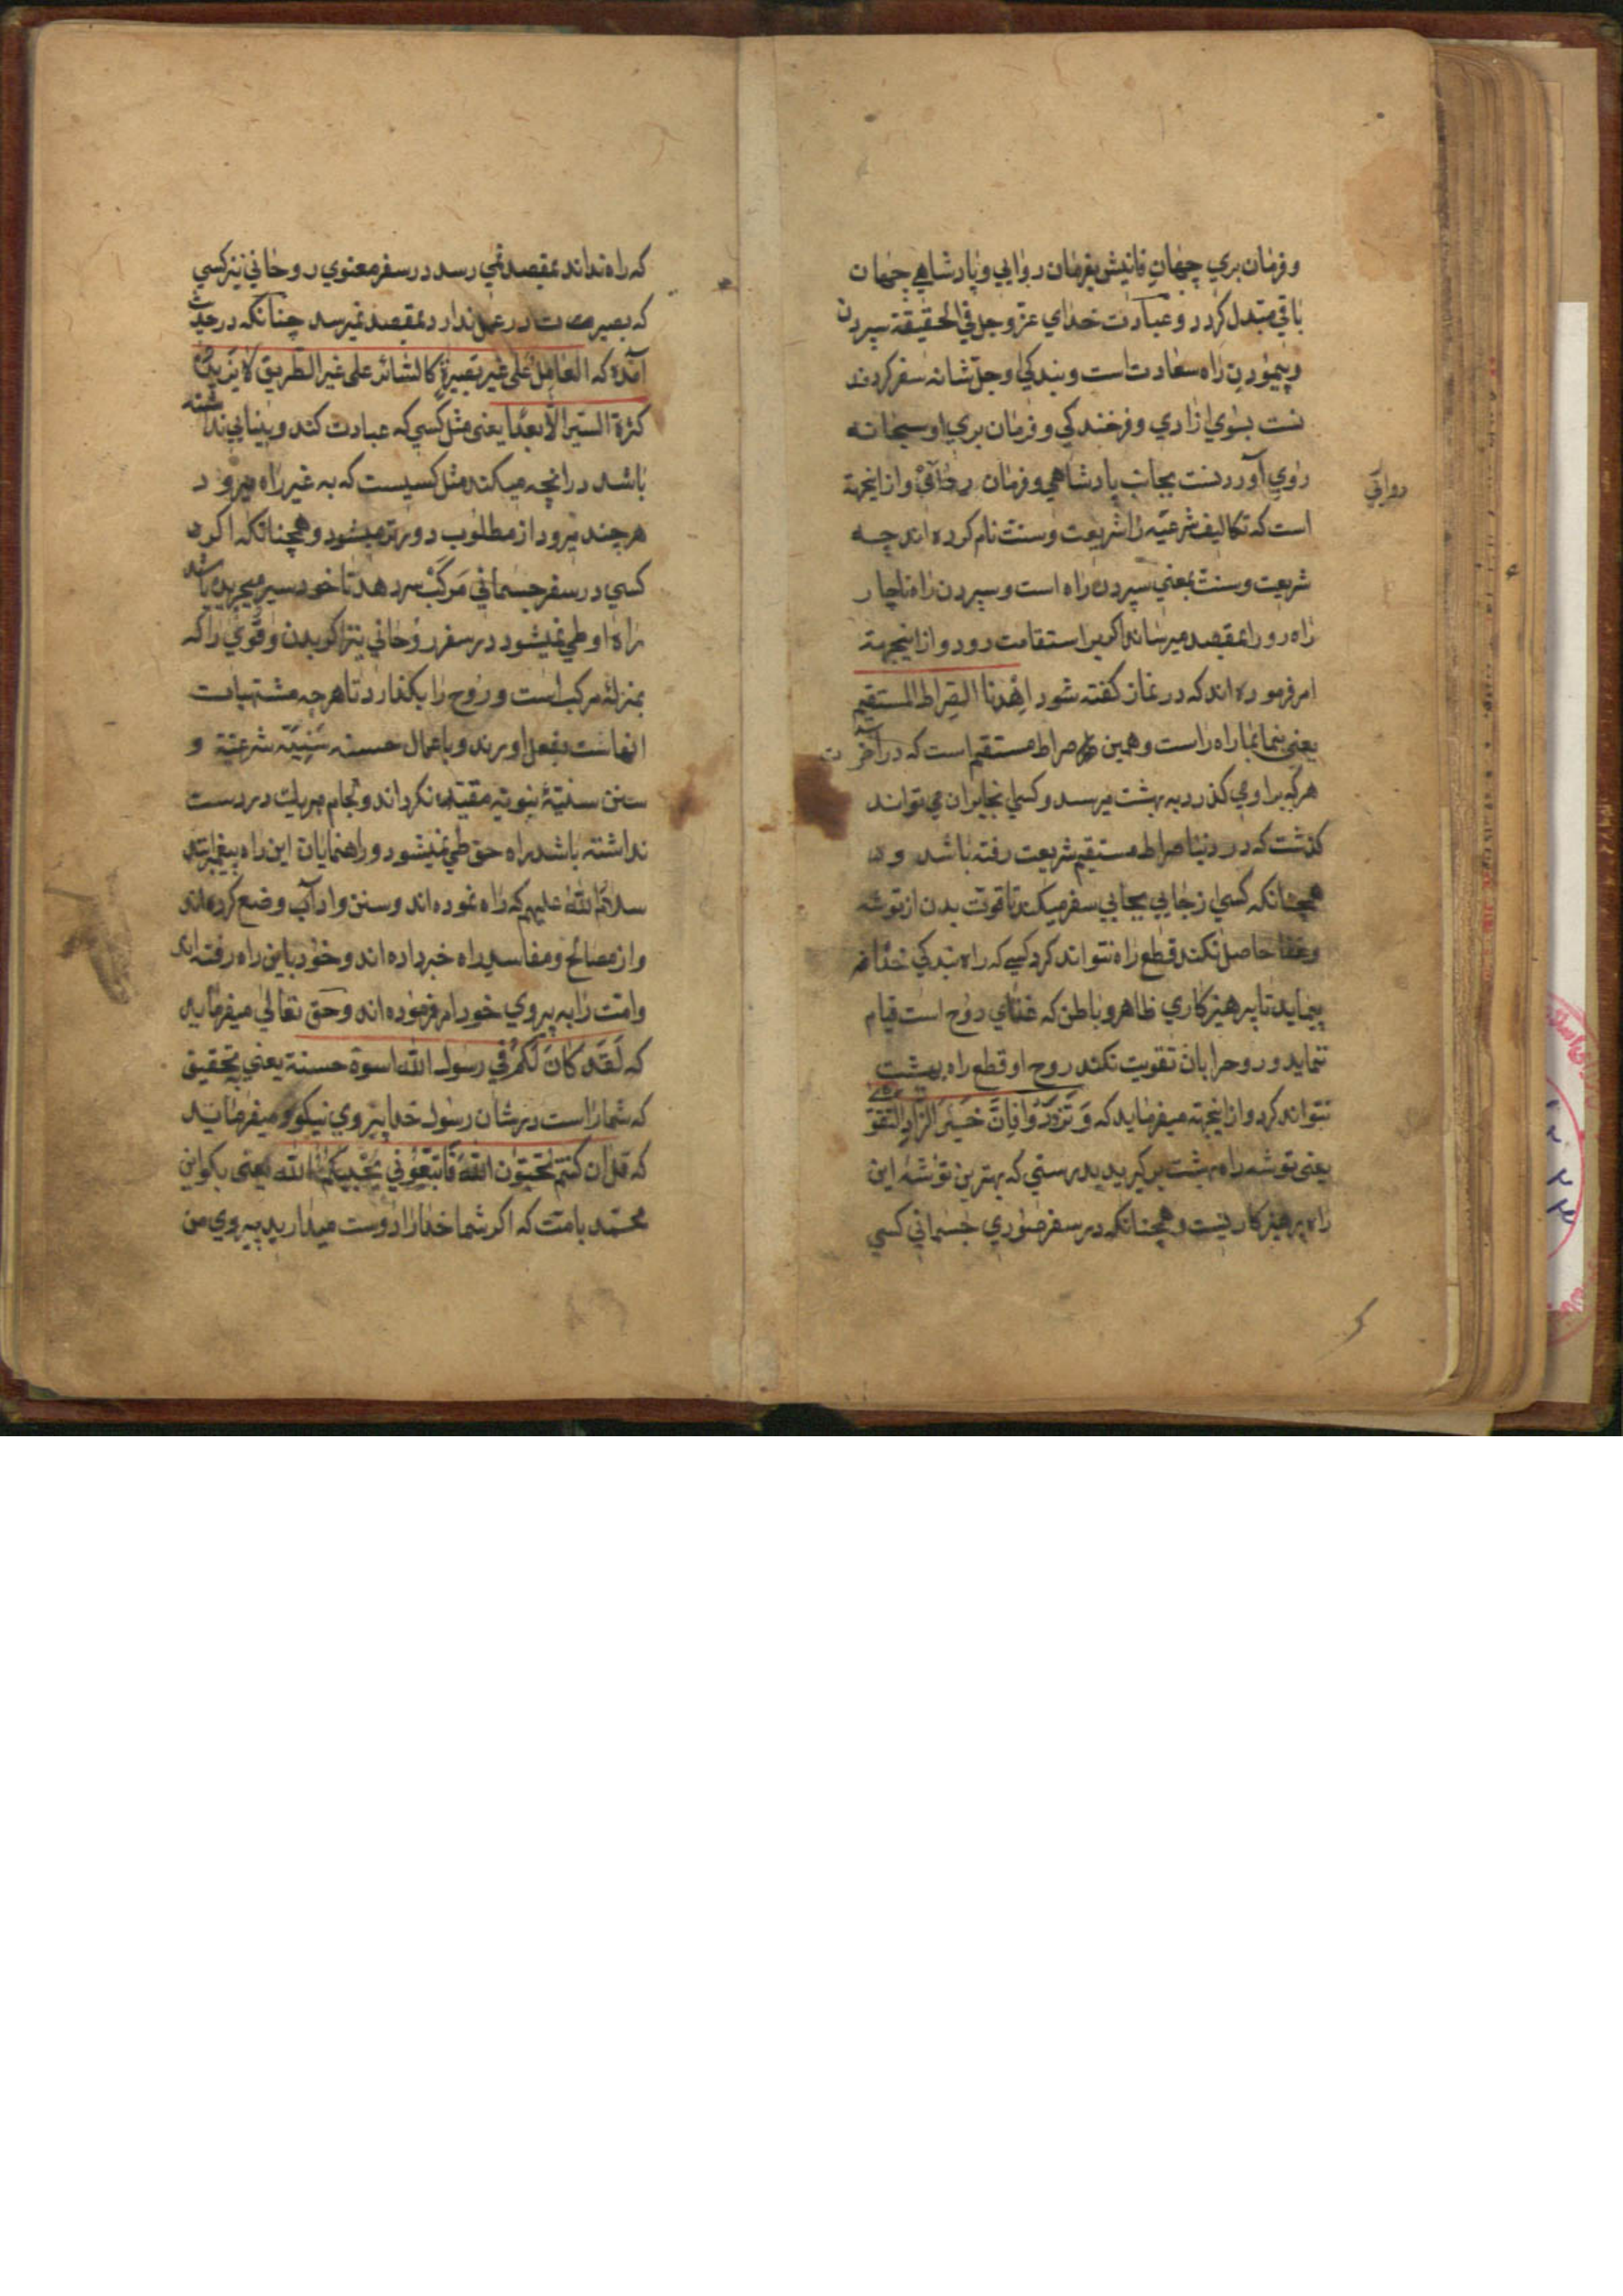 وفرمان بري جهان فانيش بفرمان روايي و پادشاهي جهان
باقي مبتدل كردد و عبادت خداي عز و جل في الحقيقة سپردن
و پيمودن راه سعادت است و بندكي وجل شانه سفر كردند
نست بسوي ازادي و فرخندكي و فرمان بري او سبحانه
روي آوردنست بجانب پادشاهي و فرمان روائي و ازاينجهة
روائي
است كه تكاليف شرعيه را شريعت و سنت نام كرده اند چه
شريعت و سنت بمعني سپردن راه است و سپردن راه ناچار
راه رو را بمقصد ميرساند اكر براستقامت رود و ازاينجهة
امر فرموده اند كه در نماز كفته شود اهدنا الصراط المستقيم
يعني بنما بما راه راست و همين صراط مستقيم است كه در آخرت
هركه براو مي كذرد به بهشت ميرسد و كسي انجا بران مي تواند
كذشت كه در دنيا صراط مستقيم شريعت رفته باشد و
همچنانكه كسي از جايي بجايي سفر ميكند تا قوت بدن از توشه
و غذا حاصل نكند قطع راه نتواند كرد كسي كه راه بندكي خدا
پيمايد تا پرهيزكاري ظاهر و باطن كه غذاي روح است قيام
ننمايد و روح را بان تقويت نكند روح او قطع راه بهشت
نتواند كرد و ازاينجهة ميفرمايد كه و تزودوا فان خير الزاد التقوى
يعني توشه راه بهشت بركيريد بدرستي كه بهترين توشه اين
راه پرهيزكاريست و همچنانكه در سفر صوري جسماني كسي
كه راه نداند بمقصد نمي رسد در سفر معنوي روحاني نيز كسي
كه بصيرت در عمل ندارد بمقصد نميرسد چنانكه در حديث
آمده كه العامل على غير بصيرة كالسائر على غير الطريق لا يزيده
كثرة السير الا بعدا يعني مثل كسي كه عبادت كند و بينايي نداشته
باشد در انچه ميكند مثل كسيست كه به غير راه ميرود
هرچند ميرود از مطلوب دورتر ميشود و همچنانكه اكر
كسي در سفر جسماني مركب سر دهد تا خود سير ميچريده باشد
راه او طي نميشود در سفر روحاني نيز اكر بدن و قوي را كه
بمنزله مركب است و روح را بكذارد تا هرچه مشتهيات
انهاست بفعل اورند و باعمال حسنه سنيه شرعيه و
سنن سنيه نبويه مقيد نكرداند و لجام هريك در دست
نداشته باشد راه حق طي نميشود و راهنمايان اين راه پيغمبرانند
سلام الله عليهم كه راه نموده اند و سنن و اداب وضع كرده اند
و از مصالح و مفاسد راه خبر داده اند و خود باين راه رفته اند
و امت را به پيروي خود امر فرموده اند و حق تعالي ميفرمايد
كه لقد كان لكم في رسول الله اسوة حسنة يعني بتحقيق
كه شما راست در شان رسول خدا پيروي نيكو و ميفرمايد
كه قل ان كنتم تحبون الله فاتبعوني يحببكم الله يعني بكو اين
محمد بامتت كه اكر شما خدا را دوست ميداريد پيروي من